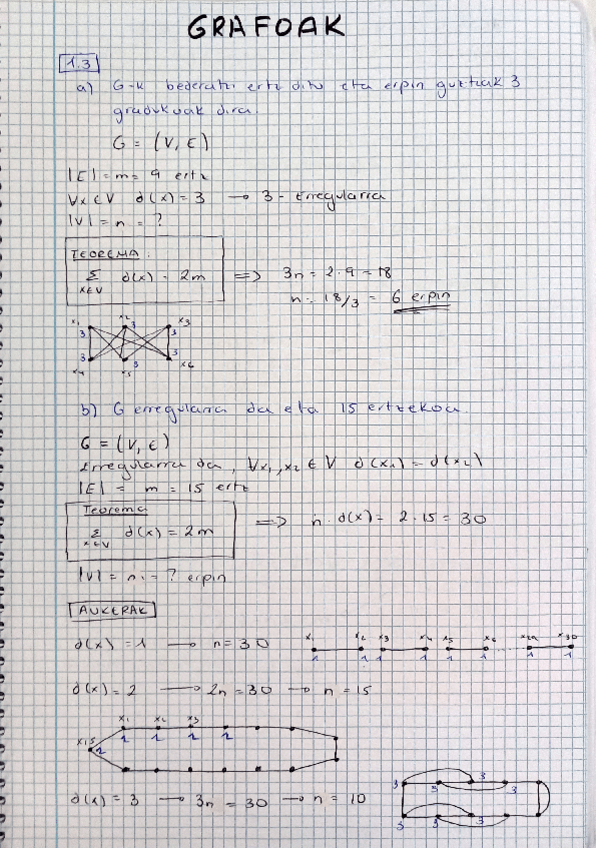 GRAFOAK
1.3
a) G-k bederatzi ertz ditu eta erpin guztiak 3
gradukoak dira.
G = (V, E)
|E| = m = 9 ertz
∀x∈V d(x) = 3 → 3-Erregularra
|V| = n = ?
TEOREMA:
Σ d(x) = 2m ⟹ 3n = 2·9 = 18
x∈V
n = 18/3 = 6 erpin
x₁ x₂ x₃
3 3 3
3 3 3
x₄ x₅ x₆
b) G erregularra da eta 15 ertzekoa.
G = (V, E)
Erregularra da, ∀x₁,x₂ ∈ V d(x₁) = d(x₂)
|E| = m = 15 ertz
Teorema
Σ d(x) = 2m ⟹ n·d(x) = 2·15 = 30
x∈V
|V| = n = ? erpin
AUKERAK
d(x) = 1 → n = 30
x₁ x₂ x₃ x₄ x₅ x₆ x₂₉ x₃₀
1 1 1 1 1 1 1 1
d(x) = 2 → 2n = 30 → n = 15
x₁ x₂ x₃
x₁₅ 2 2 2 2 2
d(x) = 3 → 3n = 30 → n = 10
3 3 3 3
3 3 3